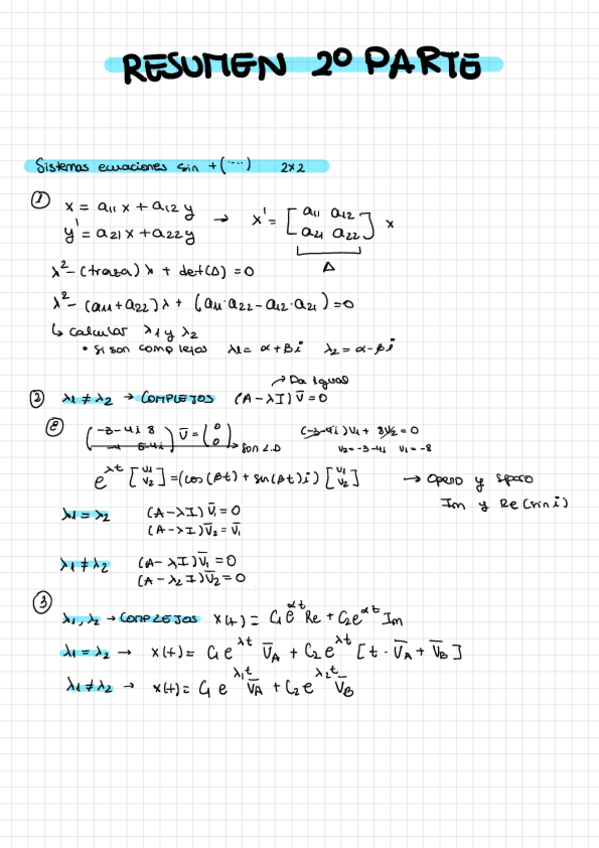 RESUMEN 2º PARTE
Sistemas ecuaciones sin t(....) 2x2
① x = a11 x + a12 y → x' = [a11 a12
y' = a21 x + a22 y a21 a22] x
A
λ² - (traza) λ + det(A) = 0
λ² - (a11 + a22) λ + (a11·a22 - a12·a21) = 0
↳ calcular λ1 y λ2
• si son complejos λ1 = α + βi λ2 = α - βi
→ Da igual
② λ1 ≠ λ2 → COMPLEJOS (A - λI) v̄ = 0
(-3-4i 8) v̄ = (0 (-3-4i)V1 + 8V2 = 0
0) → son L.D V2 = -3-4i V1 = -8
e^λt [V1 V2] = (cos(βt) + sin(βt)i) [V1 V2] → Opero y separo
Im y Re (sin i)
λ1 = λ2 (A - λI) v̄1 = 0
(A - λI) v̄2 = v̄1
λ1 ≠ λ2 (A - λ1 I) v̄1 = 0
(A - λ2 I) v̄2 = 0
③ λ1, λ2 → COMPLEJOS x(t) = C1 e^αt Re + C2 e^αt Im
λ1 = λ2 → x(t) = C1 e^λt V̄A + C2 e^λt [t · V̄A + V̄B]
λ1 ≠ λ2 → x(t) = C1 e^λ1t V̄A + C2 e^λ2t V̄B